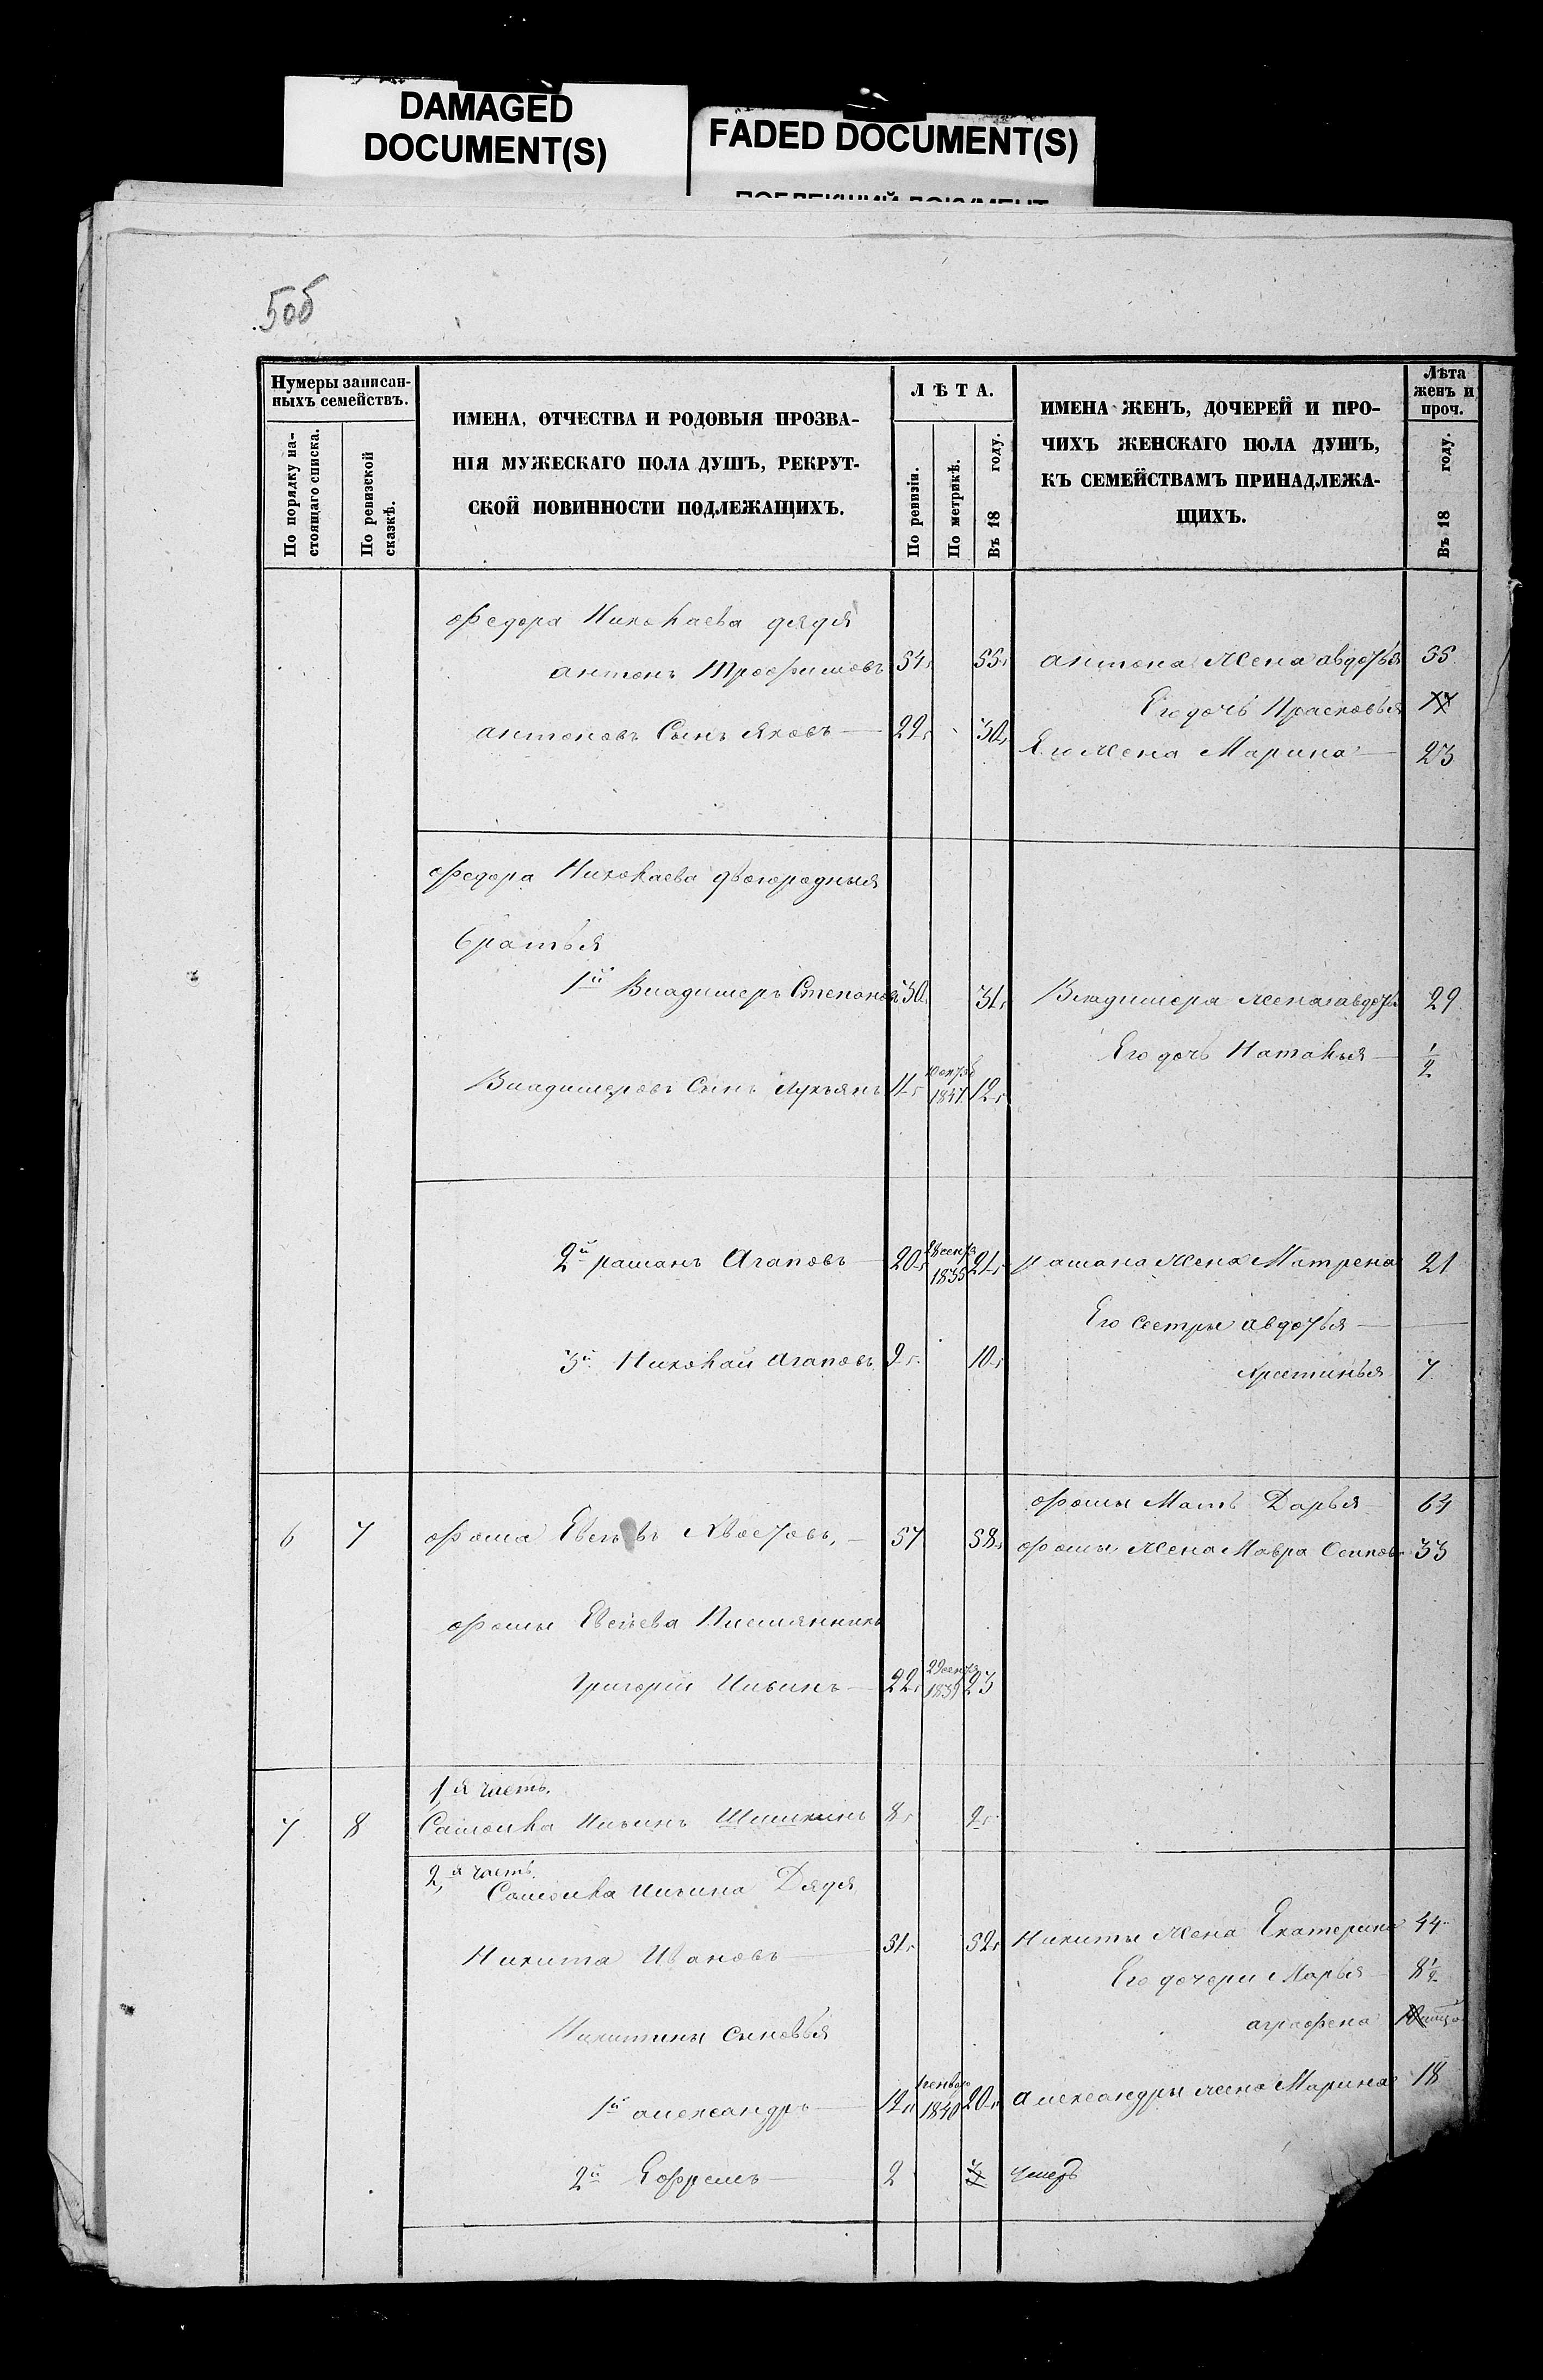 DAMAGED
DOCUMENT(S)
FADED DOCUMENT(S)
50б
Нумеры записан-
ныхъ семействъ.
По порядку на-
стоящаго списка.
По ревизской
сказкѣ.
ИМЕНА, ОТЧЕСТВА И РОДОВЫЯ ПРОЗВА-
НІЯ МУЖЕСКАГО ПОЛА ДУШЪ, РЕКРУТ-
СКОЙ ПОВИННОСТИ ПОДЛЕЖАЩИХЪ.
ЛѢТА.
По ревизіи.
По метрикѣ.
Въ 18 году.
ИМЕНА ЖЕНЪ, ДОЧЕРЕЙ И ПРО-
ЧИХЪ ЖЕНСКАГО ПОЛА ДУШЪ,
КЪ СЕМЕЙСТВАМЪ ПРИНАДЛЕЖА-
ЩИХЪ.
Лѣта
женъ и
проч.
Въ 18 году.
Федора Николаева дядя
антонъ Трофимовъ 54 55 антона Жена авдотья 55
Его дочь Прасковья
антоновъ Сынъ Яковъ 29 30 Его Жена Марина 23
Федора Николаева двоюродныя
братья
1й Владимеръ Степановъ 30 31 Владимера жена авдотья 29
Его дочь Наталья 1/2
Владимеровъ Сынъ Лукьянъ 11 1847 12
2й раманъ Агаповъ 20 28 сентя 1835 21 рамана Жена Матрена 21
Его Сестры авдотья
3й Николай Агаповъ 9 10 Хрестинья 7
Фомы Мать Дарья 64
6 7 Фома Хвостовъ 57 58 Фомы Жена Мавра Осипова 33
Фомы Племянникъ
Григорій Ильинъ 22 29 сентя 23
1,я часть.
7 8 Самойла Ильинъ Шишкинъ 8 9
2,я часть.
Самойла Ильина Дядя
Никита Ивановъ 51 52 Никиты Жена Екатерина 44
Его дочери Марья 8 1/2
аграфена
Никитины сыновья
1й александръ 1840 20 александры жена Марина 18
2й Ефремъ 2 умеръ